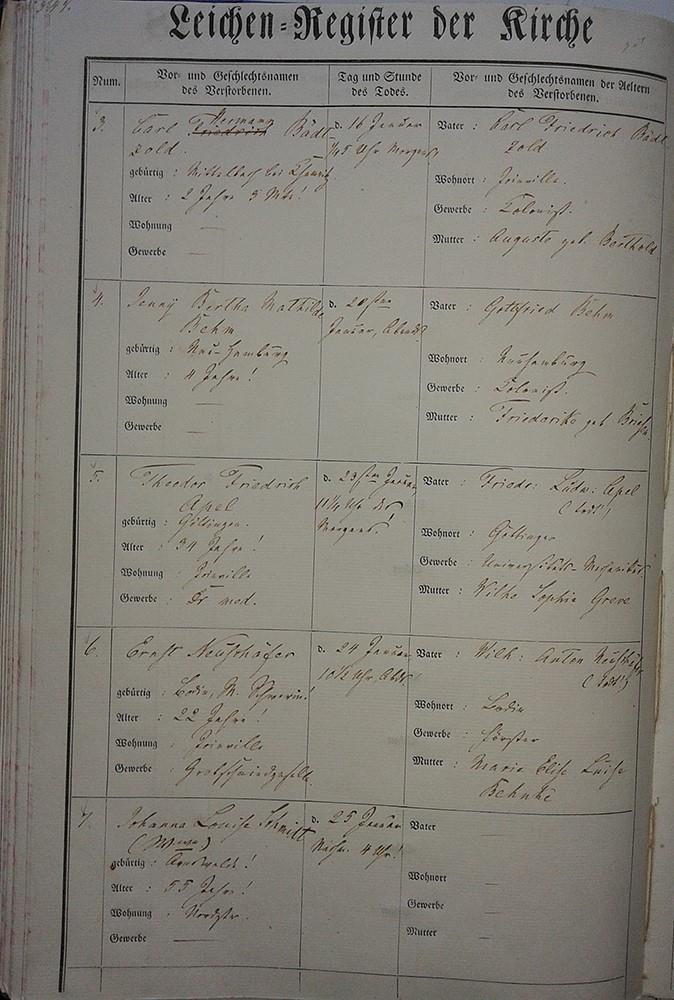 Leichen-Register der Kirche
Num.
Vor- und Geschlechtsnamen
des Verstorbenen.
Tag und Stunde
des Todes.
Vor- und Geschlechtsnamen der Aeltern
des Verstorbenen.
3.
Carl Friedrich Hermann Bädt-
zold.
gebürtig : Mitteldorf bei
Alter : 2 Jahre 3 Mte!
Wohnung —
Gewerbe —
d. 16 Januar
Uhr Morgens,
Vater : Carl Friedrich Bädt-
zold
Wohnort : Joinville.
Gewerbe : Colonist.
Mutter : Auguste geb. Berthold
4.
Jenny Bertha Mathilde
Behm
gebürtig : Neu-Hamburg
Alter : 4 Jahre!
Wohnung —
Gewerbe —
d. 20sten
Januar, Abends
Vater : Gottfried Behm
Wohnort : Neuhamburg
Gewerbe : Colonist.
Mutter : Friederike geb
5.
Theodor Friedrich
Apel
gebürtig : Göttingen.
Alter : 34 Jahre!
Wohnung : Joinville
Gewerbe : Dr med.
d. 23sten Januar,
Uhr des
Morgens!
Vater : Friedr: Ludw: Apel
(todt!)
Wohnort : Göttingen
Gewerbe : Universitäts-Mechanikus
Mutter : Wilhe Sophie Greve
6.
Ernst Neuschäfer
gebürtig : M. Schwerin!
Alter : 22 Jahre!
Wohnung : Joinville
Gewerbe : Grobschmiedgeselle.
d. 24 Januar
10½ Uhr Abds
Vater : Wilh: Anton Neuschäfer
(todt!)
Wohnort :
Gewerbe : Förster
Mutter : Marie Elise Luise
Behnke
7.
Johanna Louise Schmidt
(Wwe)
gebürtig : Arnswalde!
Alter : 55 Jahr!
Wohnung : Nordstr.
Gewerbe —
d. 25 Januar
Nachm. 4 Uhr!
Vater —
Wohnort —
Gewerbe —
Mutter —